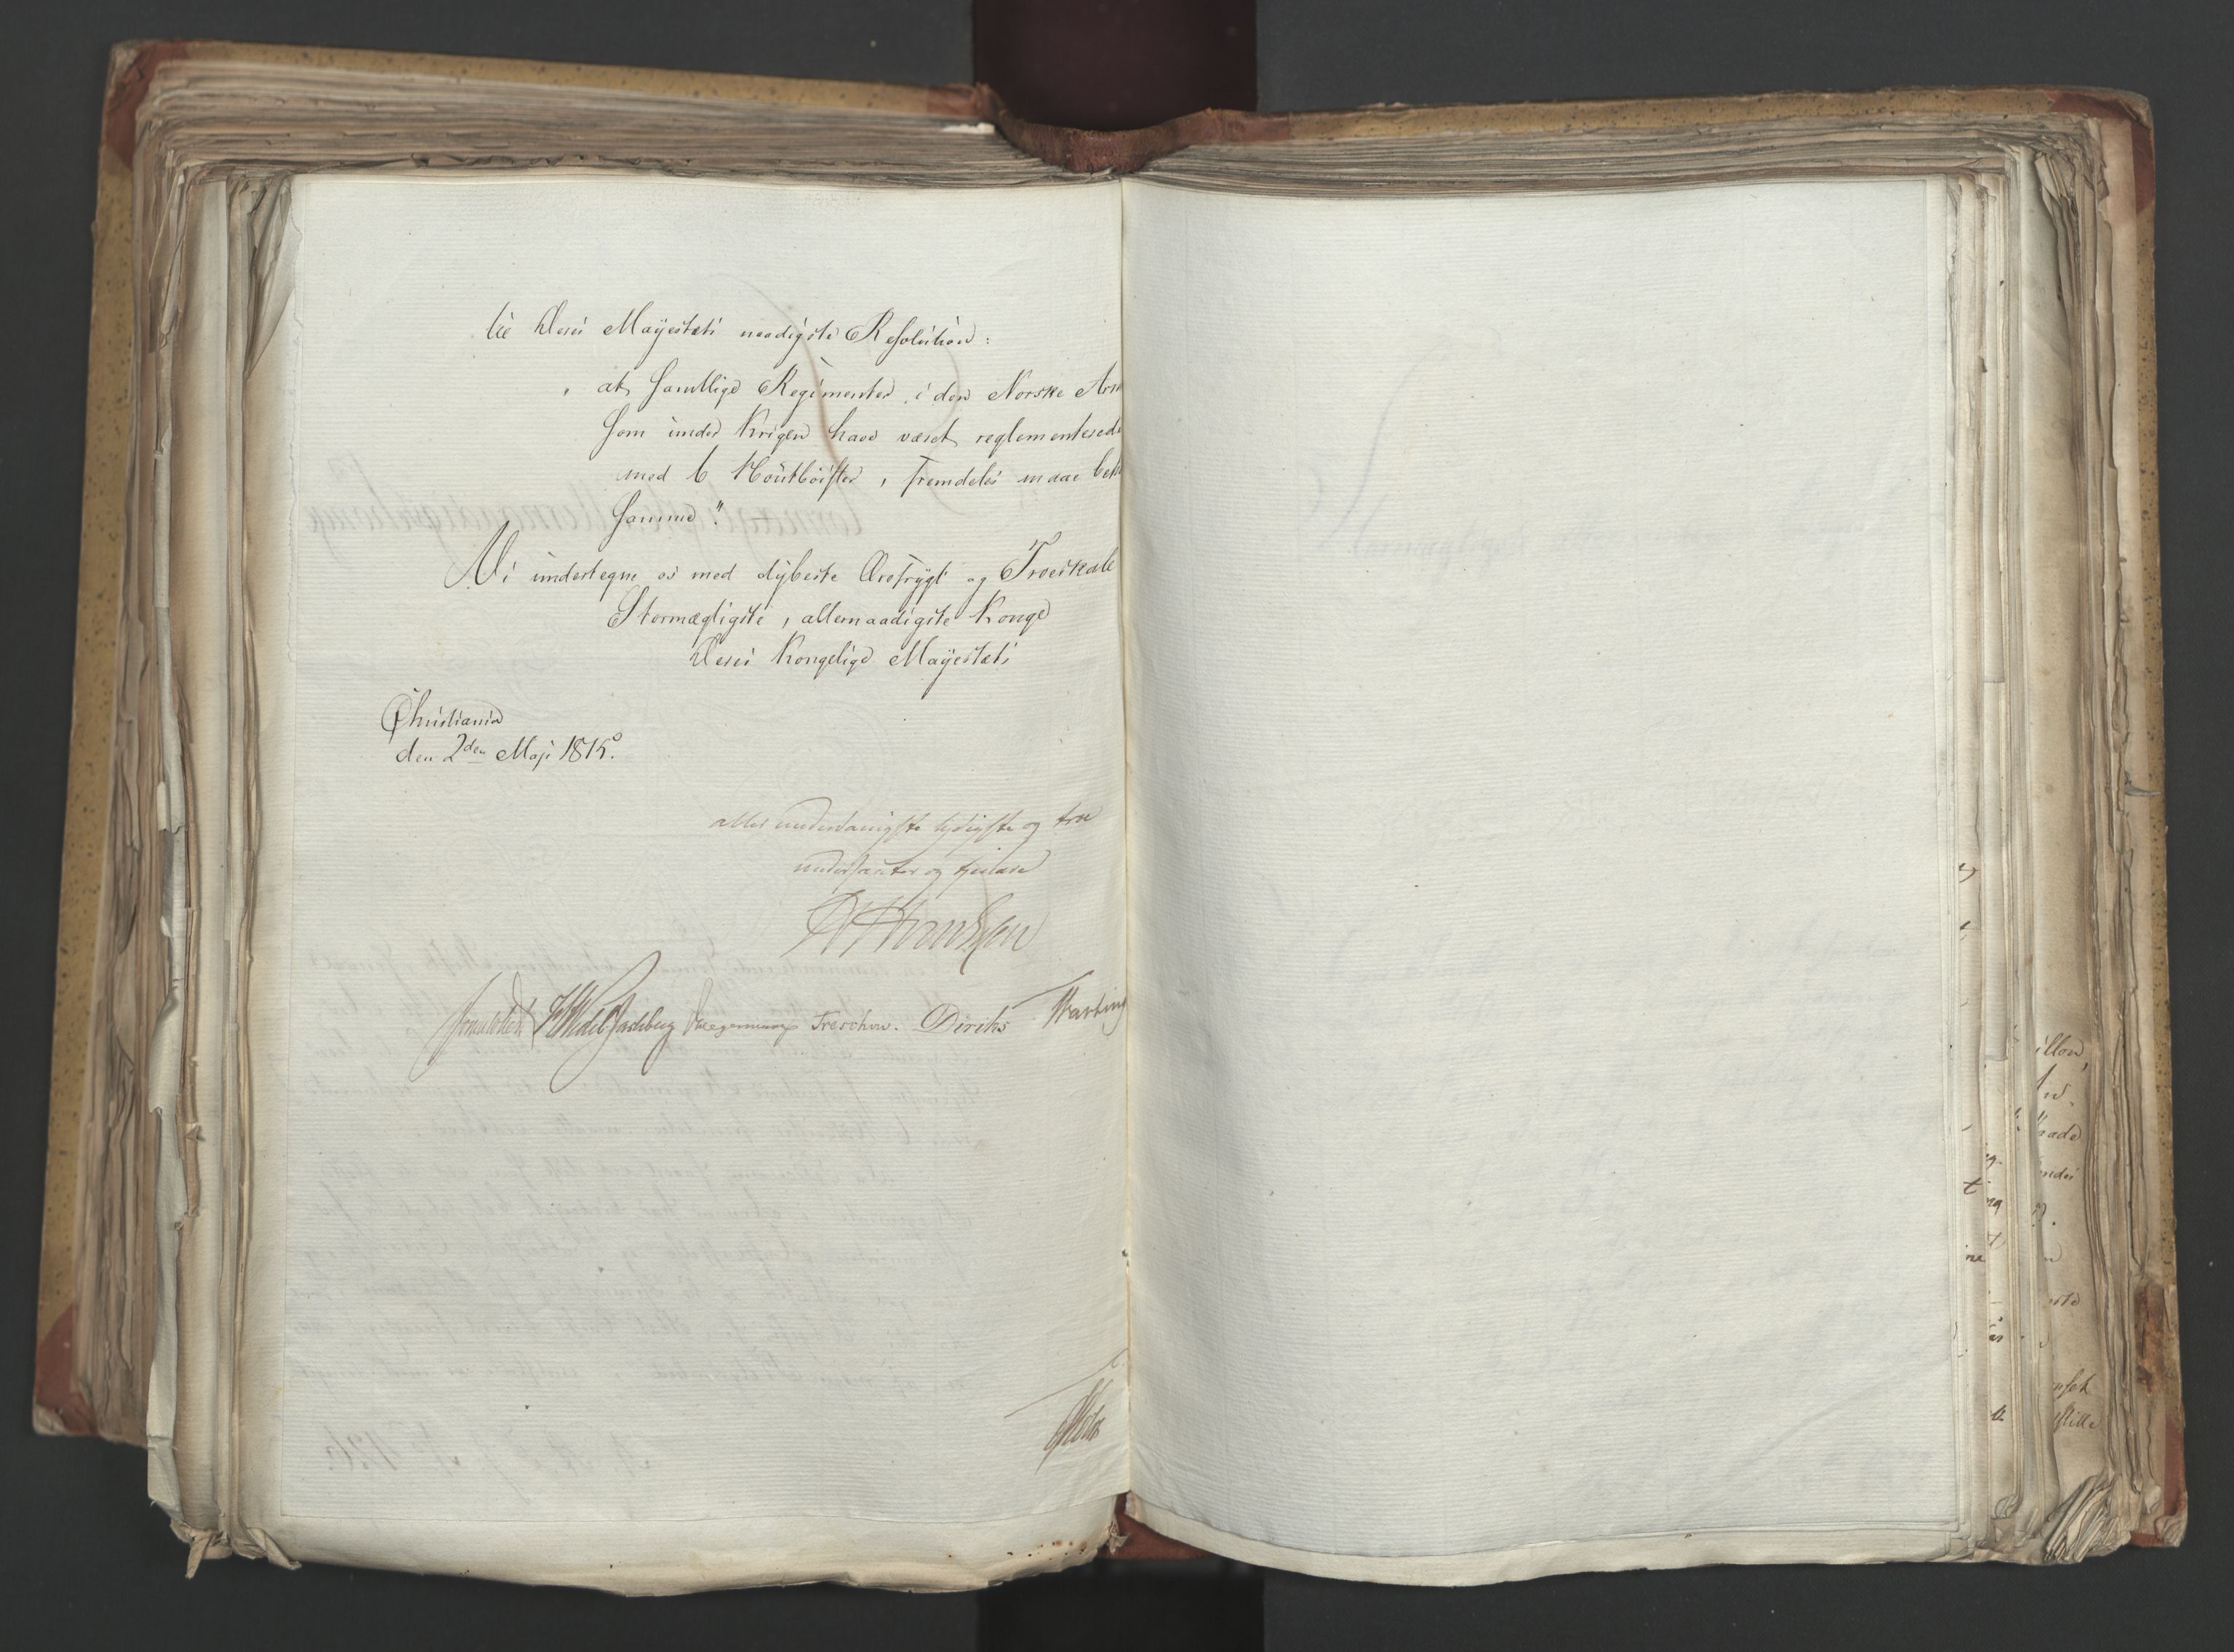 til Deres Mayestæts naadigste Resolution:
„at samtlige Regimenter i den Norske Arm
som under Krigen have været reglementerede
med 6 Houtboister, fremdeles maae beh
samme"
Vi undertegne os med dybeste Ærefrygt og Troeskab
Stormægtigste, allernaadigste Konge
Deres Kongelige Mayestæts
Christiania
den 2den Maji 1815.
allerunderdanigste lydigste og troe
undersaatter og tjenere
Sommerhielm Wedel Jarlsberg Treschow. Diriks
Holst